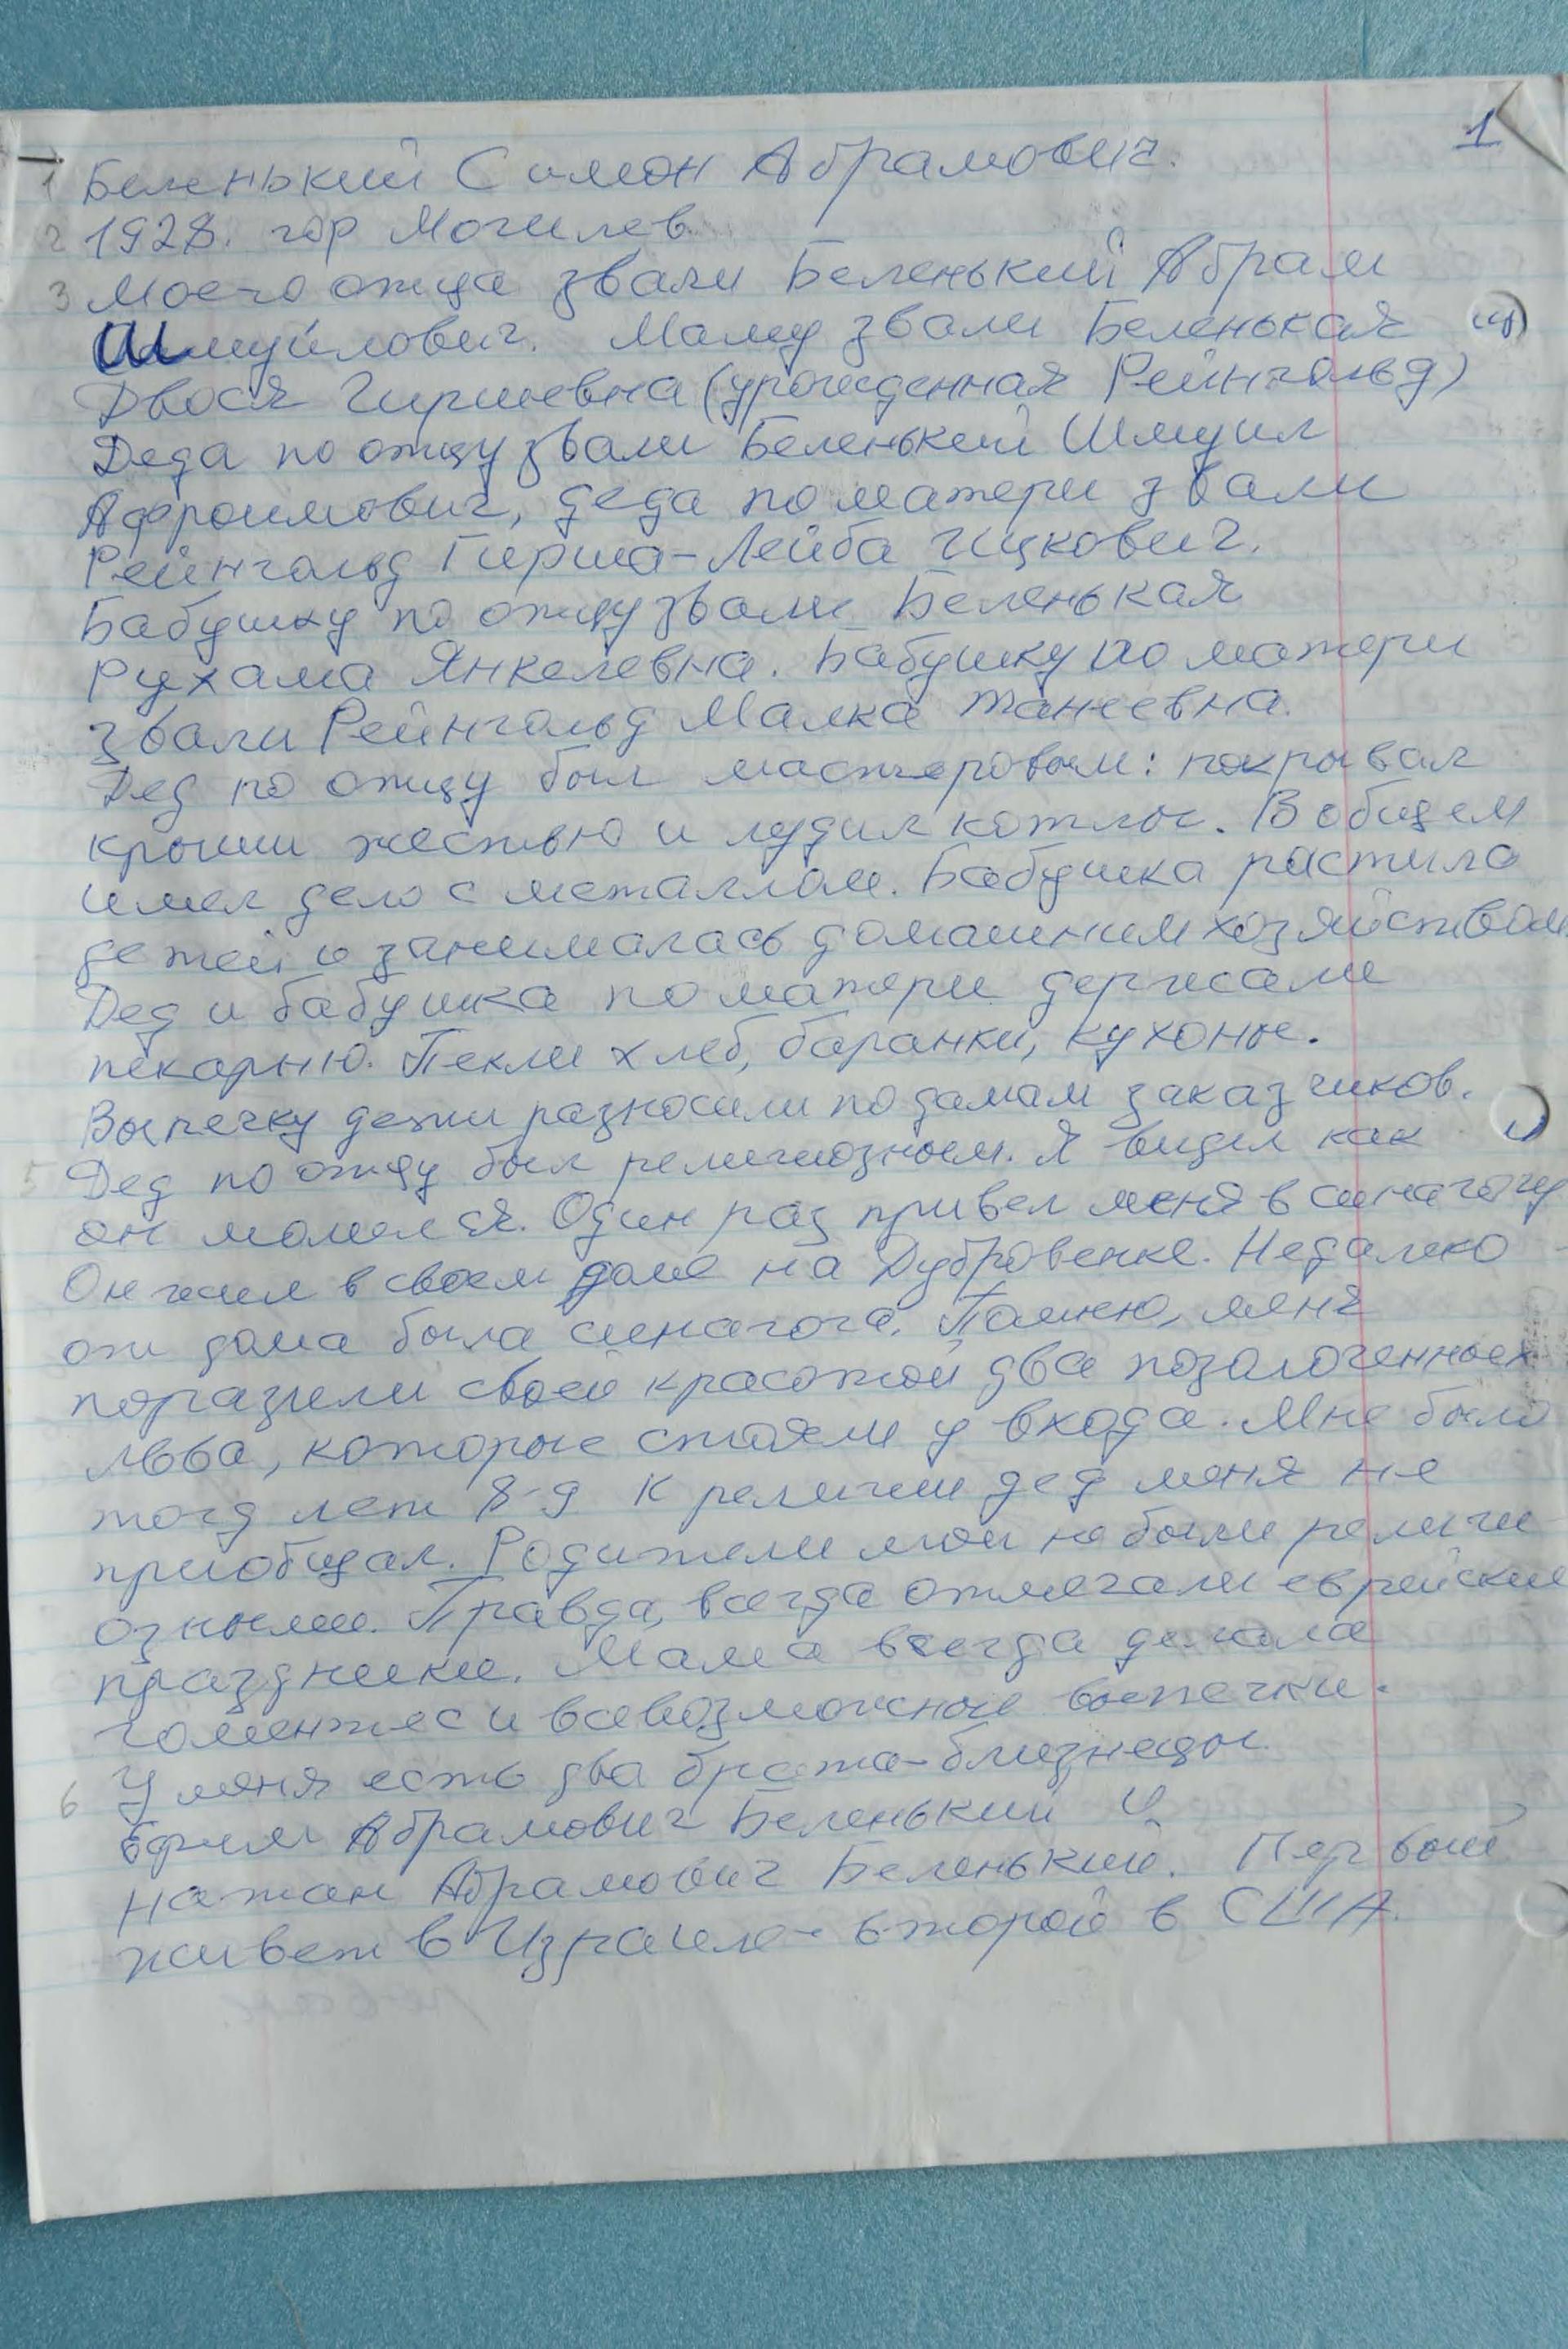 1
1 Беленький Симон Абрамович.
2 1928. гор Могилев
3 Моего отца звали Беленький Абрам
Шмуйлович. Маму звали Беленькая
Двося Гиршевна (урожденная Рейнгольд)
Деда по отцу звали Беленький Шмуил
Афроимович, деда по матери звали
Рейнгольд Гирша-Лейба Ицкович.
Бабушку по отцу звали Беленькая
Рухама Янкелевна. Бабушку по матери
звали Рейнгольд Малка Танеевна.
Дед по отцу был мастеровым: покрывал
крыши жестью и лудил котлы. В общем
имел дело с металлом. Бабушка растила
детей и занималась домашним хозяйством
Дед и бабушка по матери держали
пекарню. Пекли хлеб, баранки, кухоны.
Выпечку дети разносили по домам заказчиков.
5 Дед по отцу был религиозным. Я видел как
он молился. Один раз привел меня в синагогу
Он жил в своем доме на Дубровенке. Недалеко
от дома была синагога. Помню, меня
поразили своей красотой два позолоченных
льва, которые стояли у входа. Мне было
тогд лет 8-9 К религии дед меня не
приобщал. Родители мои не были религи
озными. Правда, всегда отмечали еврейские
праздники. Мама всегда делала
гоменташ и всевозможные выпечки.
6 У меня есть два брата-близнецы
Ефим Абрамович Беленький и
Натан Абрамович Беленький. Первый
живет в Израиле второй в США.